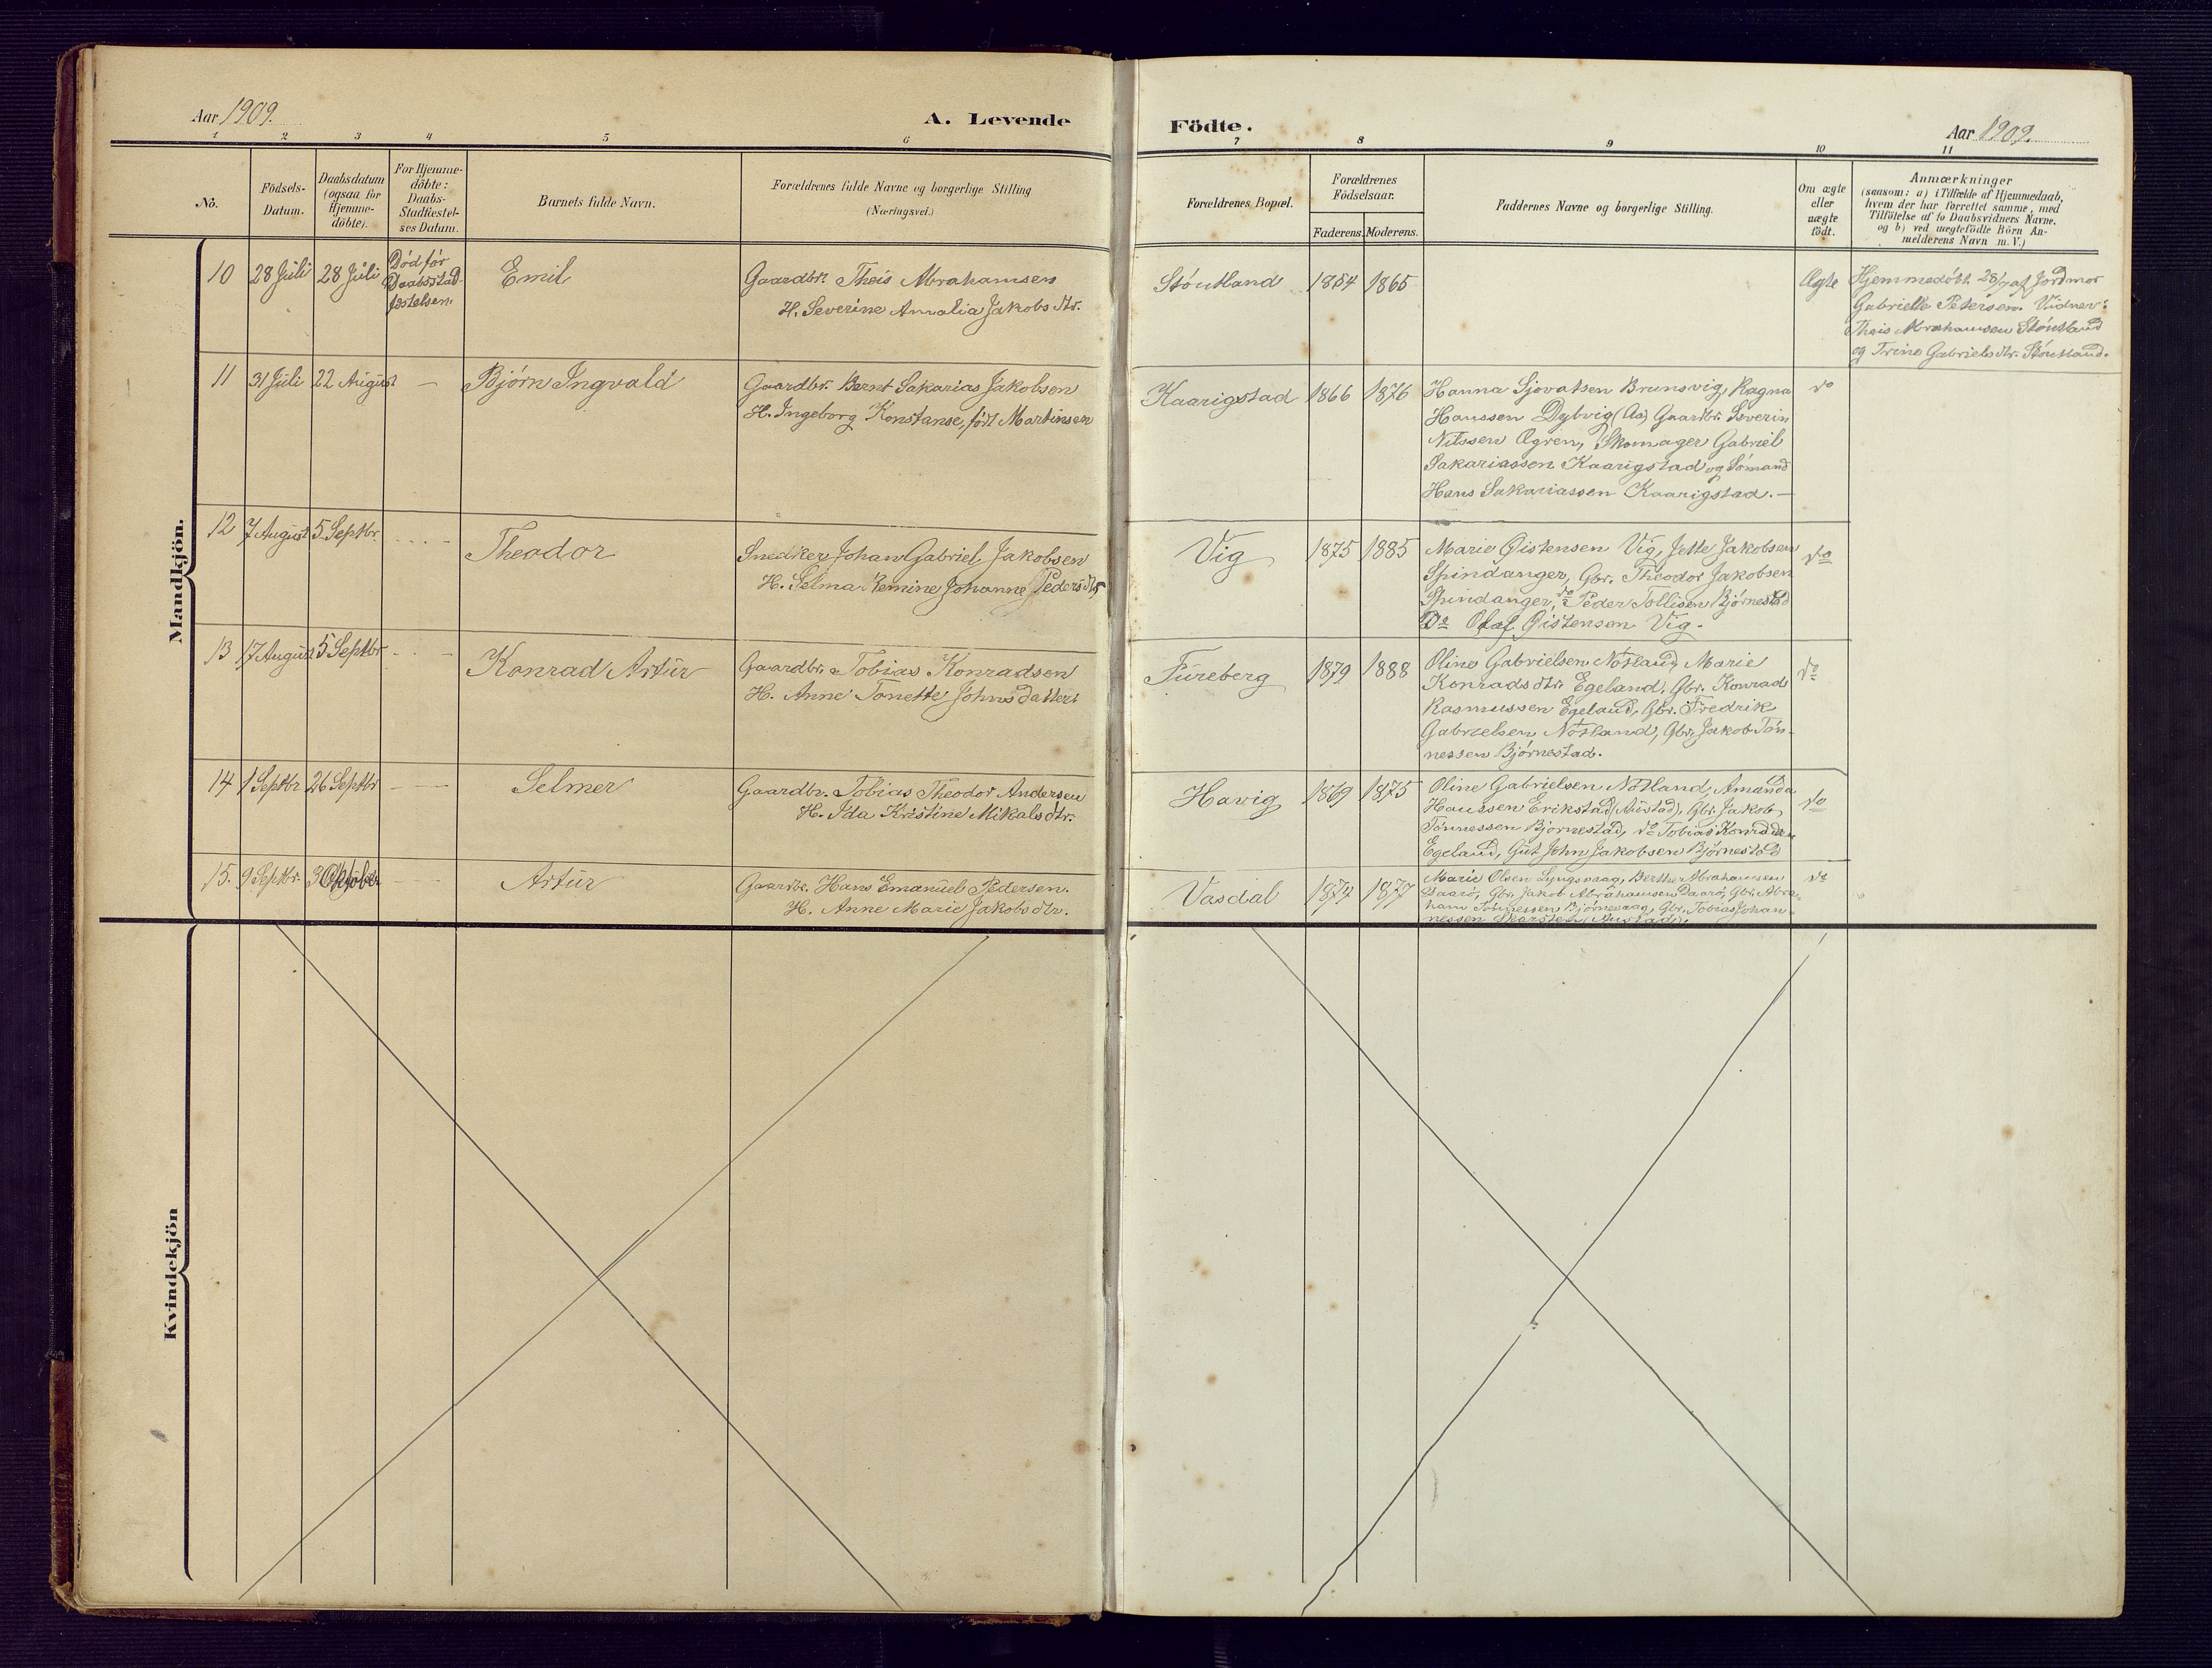 Aar 1909.
A. Levende
Födte.
Aar 1909.
1 2 3 4 5 6
7 8 9 10 11
No.
Födsels-
Datum.
Daabsdatum
(ogsaa for
Hjemme-
döbte).
For Hjemme-
döbte:
Daabs-
Stadfæstel-
ses Datum.
Barnets fulde Navn.
Forældrenes fulde Navne og borgerlige Stilling
(Næringsvei.)
Forældrenes Bopæl.
Forældrenes
Födselsaar.
Faderens. Moderens.
Faddernes Navne og borgerlige Stilling.
Om ægte
eller
uægte
födt.
Anmærkninger
(saasom: a) i Tilfælde af Hjemmedaab,
hvem der har forrettet samme, med
Tilföielse af to Daabsvidners Navne,
og b) ved uægtefödte Börn An-
melderens Navn m. V.)
Mandkjön.
10 28 Juli 28 Juli
Død før
Daabsstad-
fæstelsen.
Emil
Gaardbr. Theis Abrahamsen
H. Severine Amalia Jakobsdtr.
Støutland 1854 1865
Ægte
Hjemmedøbt 28/7 af Jordmor
Gabrielle Petersen. Vidner:
Theis Abrahamsen Støutland
og Trine Gabrielsdtr. Støutland.
11 31 Juli 22 August —
Bjørn Ingvald
Gaardbr. Bernt Sakarias Jakobsen
H. Ingeborg Konstanse, født Martinsen
Kaarigstad 1866 1876
Hanna Sjovatsen Brunsvig, Ragna
Hanssen Dybvig (Aa) Gaardbr. Severin
Nilssen Øgren, Skomager Gabriel
Sakariassen Kaarigstad og Sømand
Hans Sakariassen Kaarigstad. —
do
12 7 August 5 Septbr. . . . .
Theodor
Snedker Johan Gabriel Jakobsen
H. Selma Johanne Pedersdtr
Vig 1875 1885
Marie Øistensen Vig, Jette Jakobsen
Spindanger, Gbr. Theodor Jakobsen
Spindanger, do Peder Tollisen Bjørnestad
Do Olaf Øistensen Vig.
do
13 17 August 5 Septbr
Konrad Artur
Gaardbr. Tobias Konradsen
H. Anne Tonette Johnsdatter
Fureberg 1879 1888
Oline Gabrielsen Nøtland, Marie
Konradsdtr. Egeland, Gbr. Konrad
Rasmussen Egeland, Gbr. Fredrik
Gabrielsen Nøtland, Gbr. Jakob Tøn-
nessen Bjørnestad.
do
14 1 Septbr 26 Septbr
Selmer
Gaardbr. Tobias Theodor Andersen
H. Ida Kristine Mikalsdtr.
Havig 1869 1875
Oline Gabrielsen Nøtland, Amanda
Hanssen Erikstad (Austad), Gbr. Jakob
Tønnessen Bjørnestad, do Tobias Konradsen
Egeland, Gut John Jakobsen Bjørnestad
do
15. 9 Septbr. 3 Oktober
Artur
Gaardbr. Hans Emanuel Pedersen.
H. Anne Marie Jakobsdtr.
Vasdal 1874 1877
Marie Olsen Lyngsvaag, Berthe Abrahamsen
Daarø, Gbr. Jakob Abrahamsen Daarø, Gbr. Abra-
ham Tønnessen Bjørnevaag, Gbr. Tobias Johan-
nessen Skarstein (Austad).
do
Kvindekjön